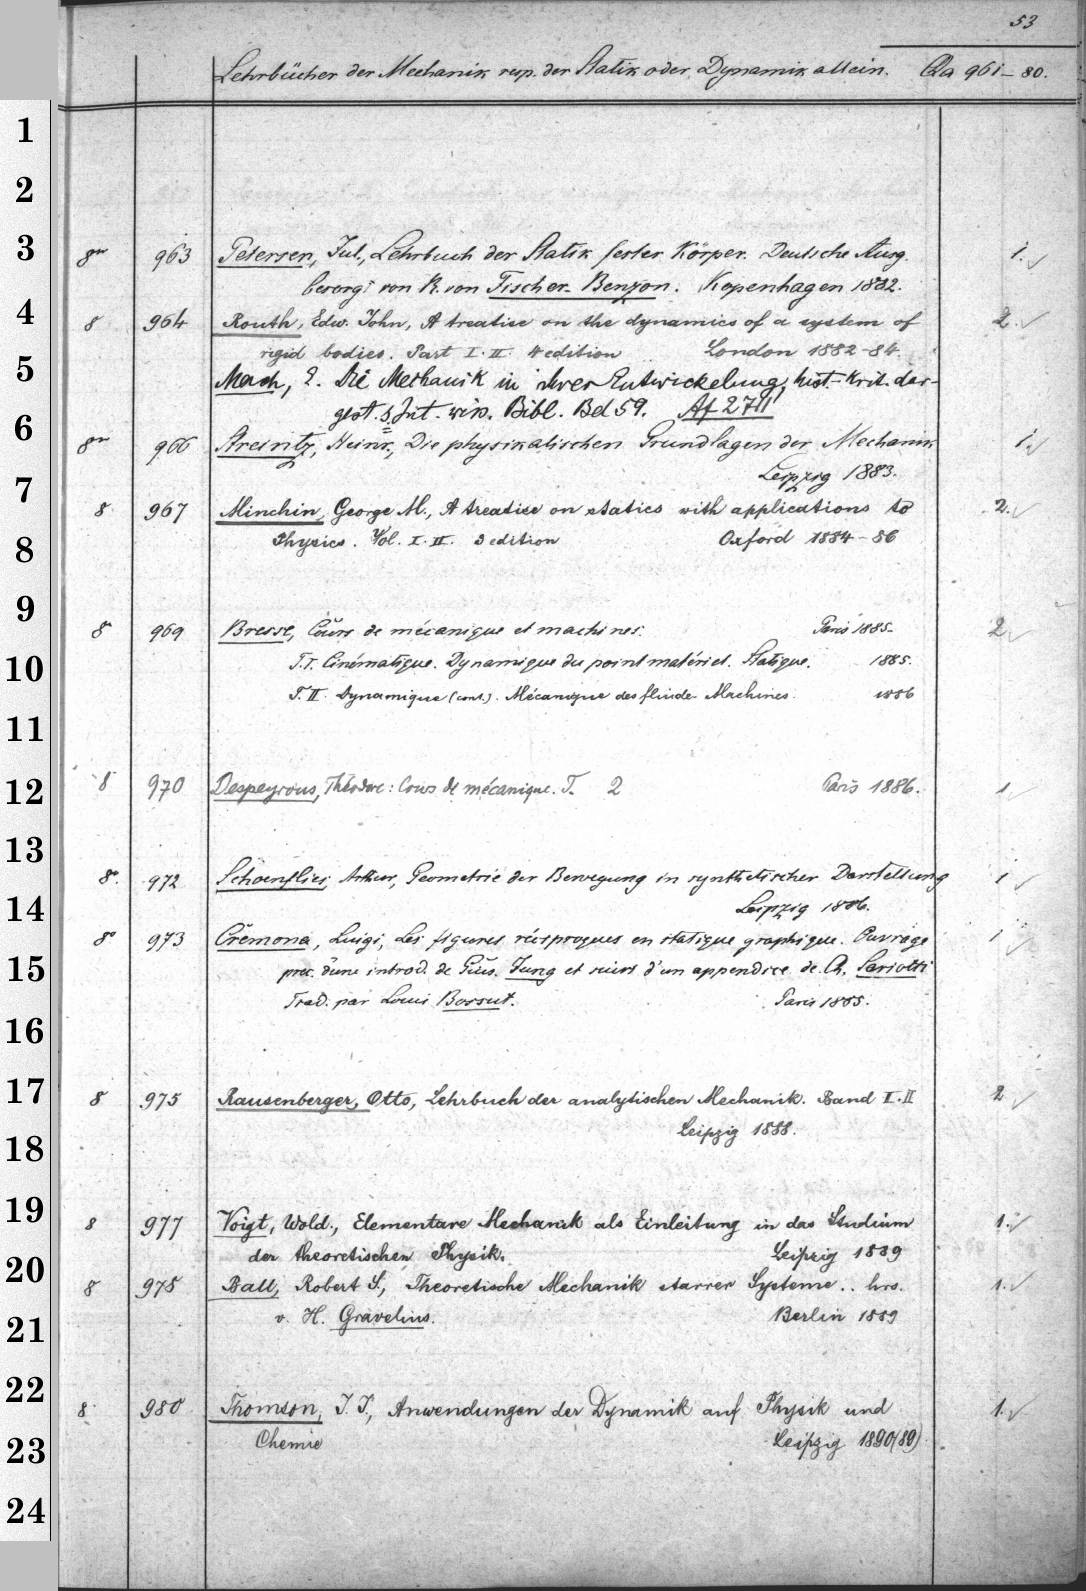 53
Lehrbücher der Mechanik resp. der Statik oder Dynamik allein. Qa 961–80.
1
2
3 8vo 963 Petersen, Jul., Lehrbuch der Statik fester Körper. Deutsche Ausg. 1. ✓
besorgt von R. von Fischer-Benzon. Kopenhagen 1882.
4 8 964 Routh, Edw. John, A treatise on the dynamics of a system of 2. ✓
rigid bodies. Part I. II. 4 edition London 1882-84.
5 Mach, E. Die Mechanik in ihrer Entwickelung, hist.-krit. dar-
gest. s. Int. wiss. Bibl. Bd 59. Af 2711
6 8vo 966 Streintz, Heinr., Die physikalischen Grundlagen der Mechanik 1. ✓
Leipzig 1883.
7 8 967 Minchin, George M., A treatise on statics with applications to 2. ✓
8 Physics. Vol. I. II. 3 edition Oxford 1884-86
9 8° 969 Bresse, Cours de mécanique et machines. Paris 1885. 2 ✓
10 T.I. Cinématique. Dynamique du point matériel. Statique. 1885.
T. II. Dynamique (cont.). Mécanique des fluide. Machines. 1886
11
12 8 970 Despeyrous, Théodore: Cours de mécanique. T. 2 Paris 1886. 1. ✓
13 8°. 972 Schoenflies, Arthur, Geometrie der Bewegung in synthetischer Darstellung 1 ✓
14 Leipzig 1886.
8° 973 Cremona, Luigi, Les figures réciproques en statique graphique. Ouvrage 1 ✓
15 préc. d'une introd. de Gius. Jung et suivi d'un appendice de Ch. Saviotti
Trad. par Louis Bossut. Paris 1885.
16
17 8 975 Rausenberger, Otto, Lehrbuch der analytischen Mechanik. Band I. II 2 ✓
Leipzig 1888.
18
19 8 977 Voigt, Wold., Elementare Mechanik als Einleitung in das Studium 1. ✓
der theoretischen Physik. Leipzig 1889
20 8 978 Ball, Robert S., Theoretische Mechanik starrer Systeme .. hrs. 1. ✓
21 v. H. Gravelius. Berlin 1889
22 8 980 Thomson, J. J., Anwendungen der Dynamik auf Physik und 1. ✓
23 Chemie Leipzig 1890(89)
24